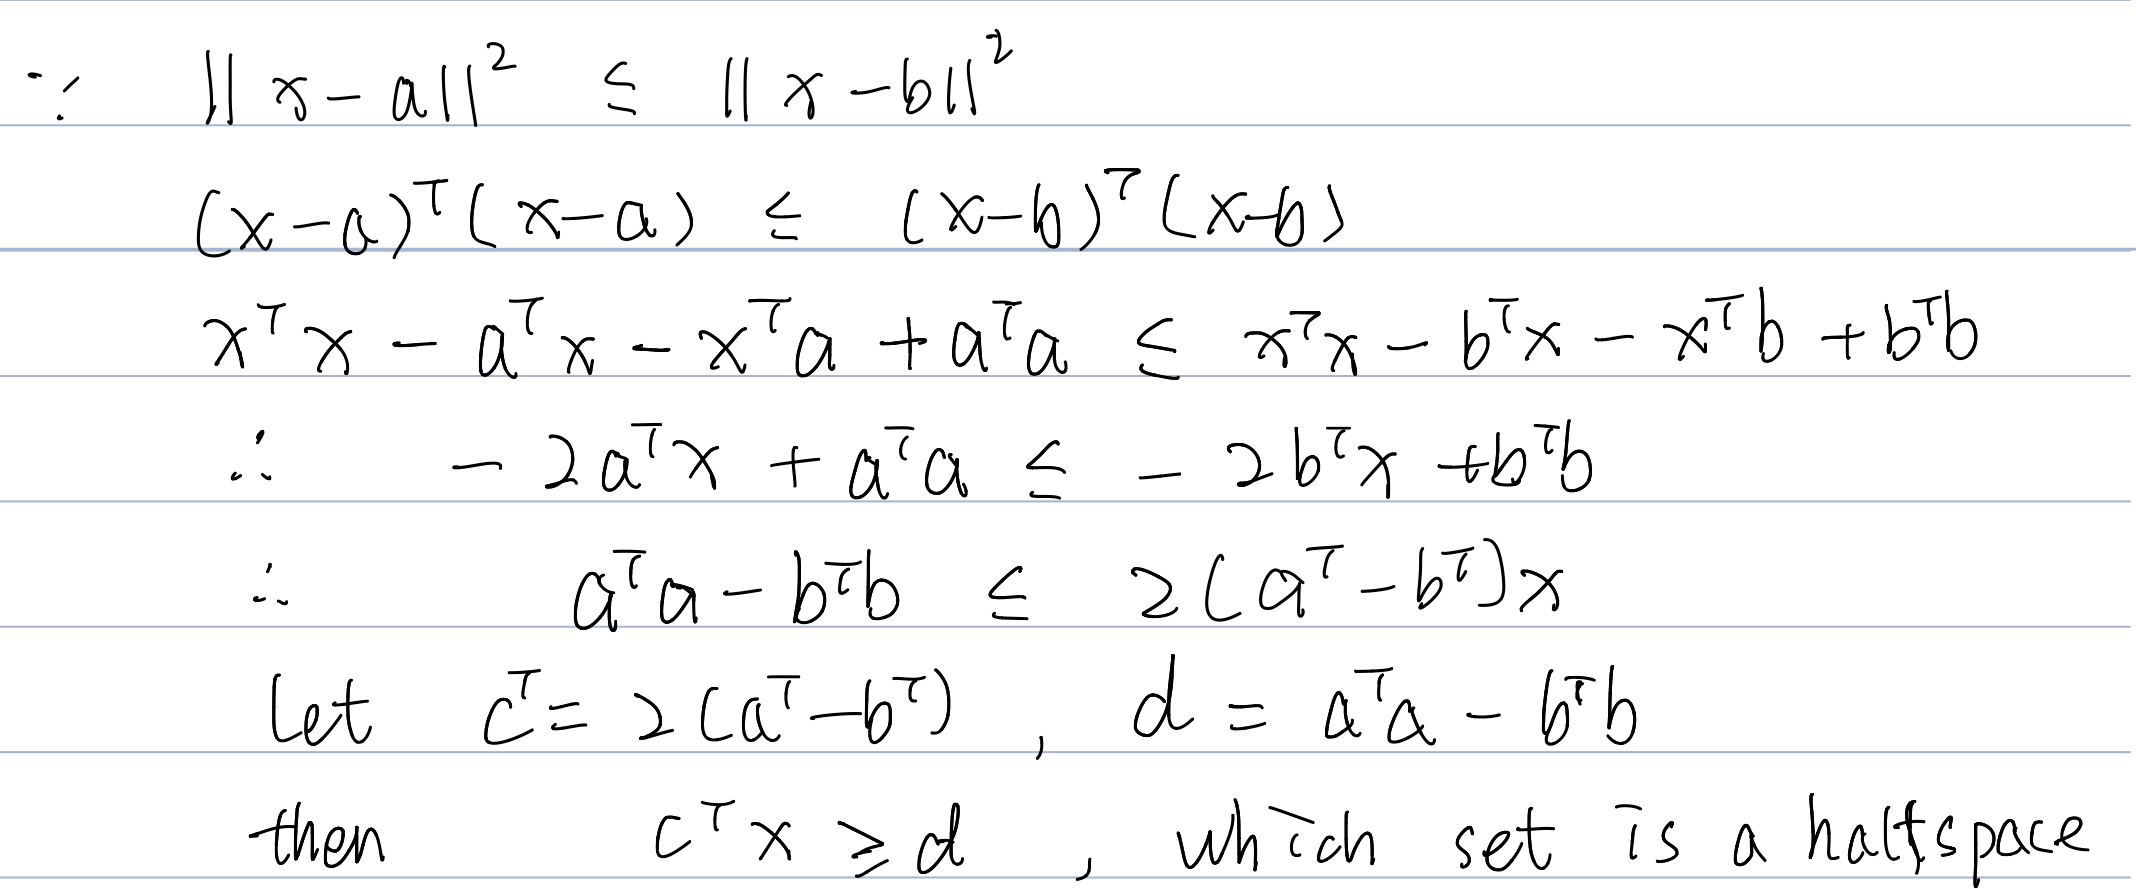 ∵ ||x-a||² ≤ ||x-b||²
(x-a)ᵀ(x-a) ≤ (x-b)ᵀ(x-b)
xᵀx - aᵀx - xᵀa + aᵀa ≤ xᵀx - bᵀx - xᵀb + bᵀb
∴ -2aᵀx + aᵀa ≤ -2bᵀx + bᵀb
∴ aᵀa - bᵀb ≤ 2(aᵀ - bᵀ)x
Let cᵀ = 2(aᵀ - bᵀ), d = aᵀa - bᵀb
then cᵀx ≥ d, which set is a halfspace